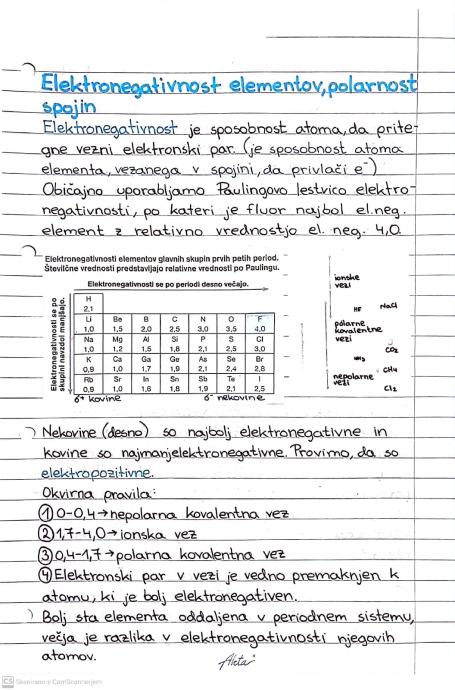 Elektronegativnost elementov, polarnost
spojin
Elektronegativnost je sposobnost atoma, da prite-
gne vezni elektronski par. (je sposobnost atoma
elementa, vezanega v spojini, da privlači e⁻)
Običajno uporabljamo Paulingovo lestvico elektro-
negativnosti, po kateri je fluor najbol el. neg.
element z relativno vrednostjo el. neg. 4,0.
Elektronegativnosti elementov glavnih skupin prvih petih period.
Številčne vrednosti predstavljajo relativne vrednosti po Paulingu.
Elektronegativnosti se po periodi desno večajo.
Elektronegativnosti se po
skupini navzdol manjšajo.
H
2,1
Li Be B C N O F
1,0 1,5 2,0 2,5 3,0 3,5 4,0
Na Mg Al Si P S Cl
1,0 1,2 1,5 1,8 2,1 2,5 3,0
K Ca Ga Ge As Se Br
0,9 1,0 1,7 1,9 2,1 2,4 2,8
Rb Sr In Sn Sb Te I
0,9 1,0 1,6 1,8 1,9 2,1 2,5
δ+ kovine δ⁻ nekovine
ionske
vezi
HF NaCl
polarne
kovalentne
vezi
CO₂
NH₃
CH₄
nepolarne
vezi
Cl₂
Nekovine (desno) so najbolj elektronegativne in
kovine so najmanjelektronegativne. Pravimo, da so
elektropozitivne.
Okvirna pravila:
① 0-0,4→nepolarna kovalentna vez
② 1,7-4,0→ionska vez
③ 0,4-1,7→polarna kovalentna vez
④ Elektronski par v vezi je vedno premaknjen k
atomu, ki je bolj elektronegativen.
Bolj sta elementa oddaljena v periodnem sistemu,
večja je razlika v elektronegativnosti njegovih
atomov.
CS Skenirano z CamScannerjem